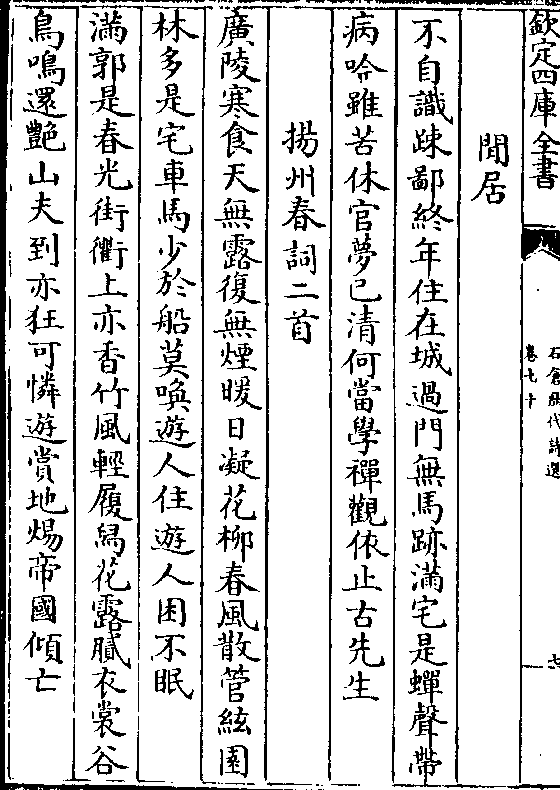 欽定四庫全書
石倉歷代詩選
卷七十
七
閒居
不自識踈鄙終年住在城過門無馬跡滿宅是蟬聲帶
病吟雖苦休官夢已清何當學禪觀依止古先生
揚州春詞二首
廣陵寒食天無露復無煙暖日凝花柳春風散管絃園
林多是宅車馬少於船莫喚遊人住遊人困不眠
滿郭是春光街衢上亦香竹風輕履舄花露膩衣裳谷
鳥鳴還艶山夫到亦狂可憐遊賞地煬帝國傾亡